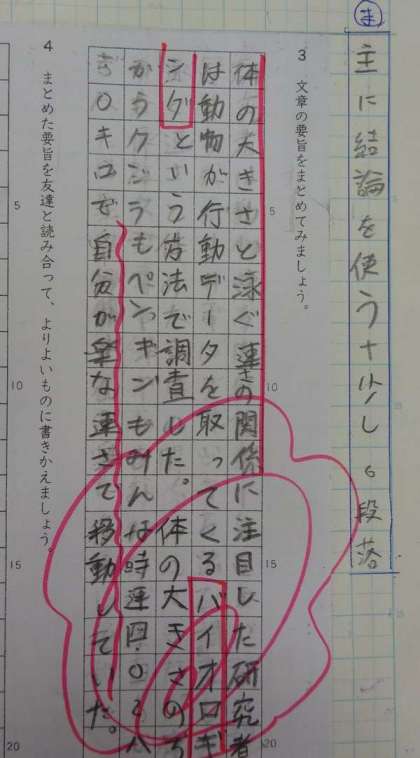 ま
主に結論を使う+少し6段落
3 文章の要旨をまとめてみましょう。
5
10
15
20
体の大きさと泳ぐ速さの関係に注目した研究者
は動物が行動データを取ってくるバイオロギ
ングという方法で調査した。体の大きさのち
がうクジラもペンギンもみんな時速
キロで自分が楽な速さで移動していた。
5
10
15
20
4 まとめた要旨を友達と読み合って、よりよいものに書きかえましょう。